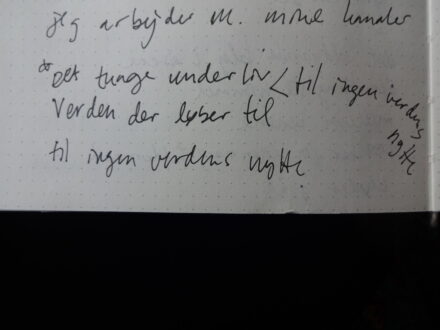 jeg arbejder m. mine kanaler
* Det tunge underliv < til ingen verdens nytte
Verden der løber til
til ingen verdens nytte